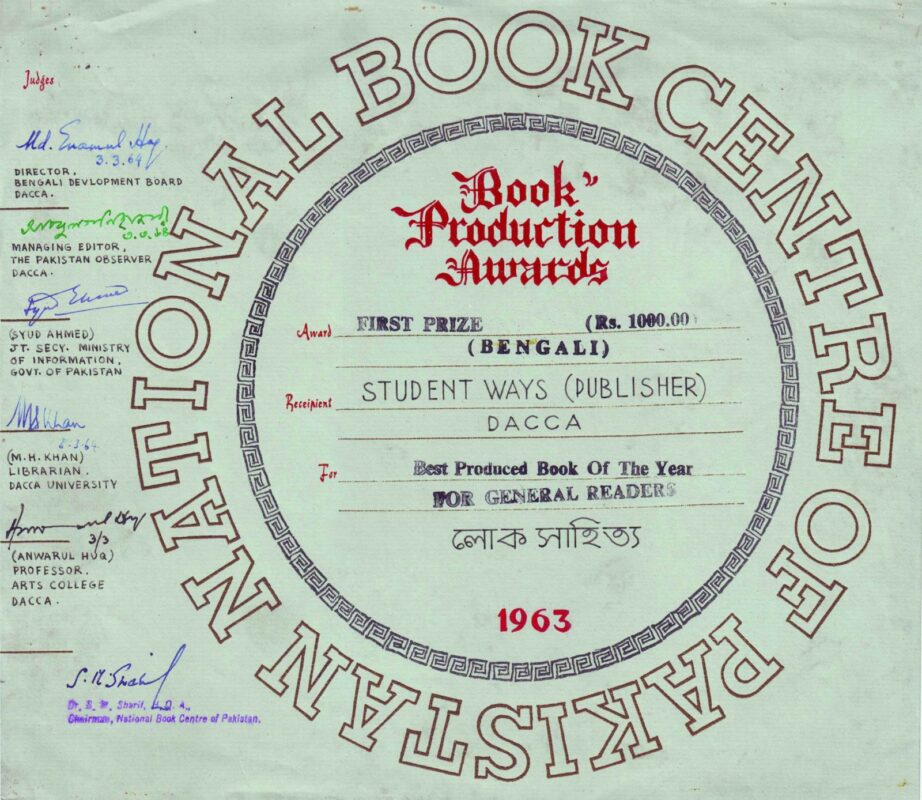 NATIONAL BOOK CENTRE OF PAKISTAN
Judges
Md. Enamul Haq
3.3.64
DIRECTOR,
BENGALI DEVLOPMENT BOARD
DACCA.
MANAGING EDITOR,
THE PAKISTAN OBSERVER
DACCA.
(SYUD AHMED)
JT. SECY. MINISTRY
OF INFORMATION,
GOVT. OF PAKISTAN
(M.H. KHAN)
LIBRARIAN.
DACCA UNIVERSITY
3/3
(ANWARUL HUQ)
PROFESSOR.
ARTS COLLEGE
DACCA.
Chairman, National Book Centre of Pakistan.
Book
Production
Awards
Award FIRST PRIZE (Rs. 1000.00)
(BENGALI)
Receipient STUDENT WAYS (PUBLISHER)
DACCA
For Best Produced Book Of The Year
FOR GENERAL READERS
লোক সাহিত্য
1963